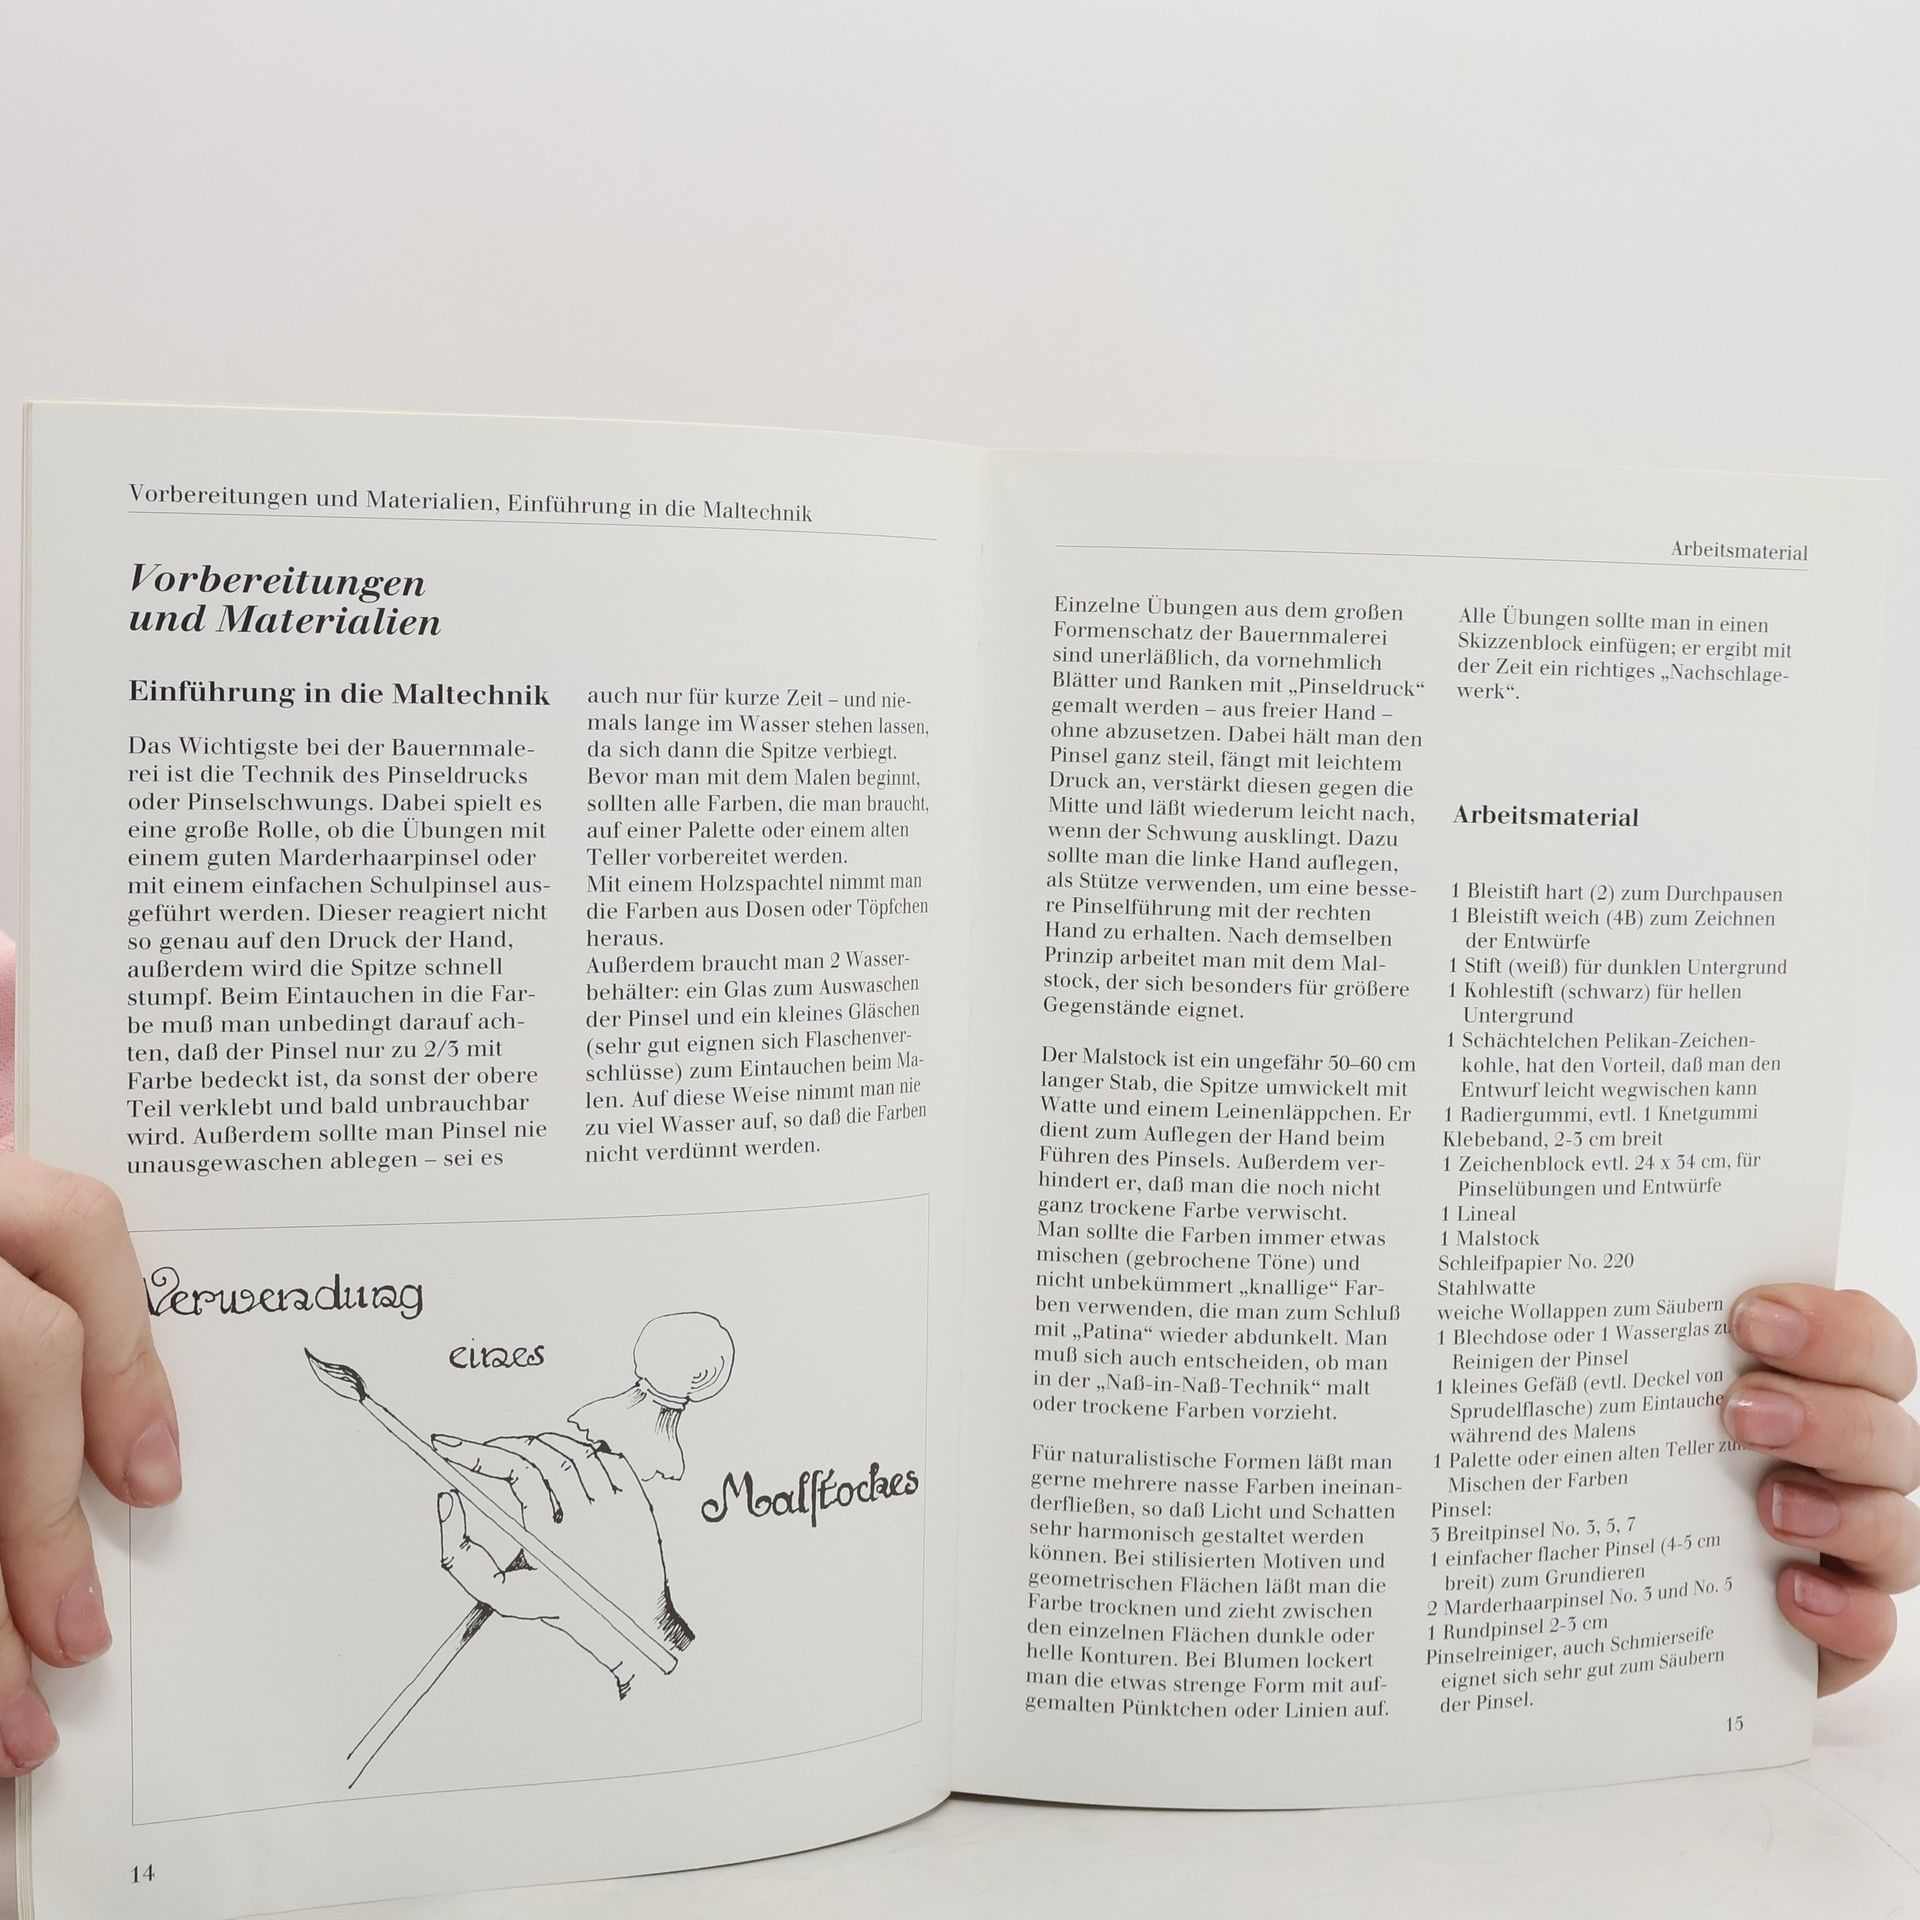 Vorbereitungen und Materialien, Einführung in die Maltechnik
Vorbereitungen
und Materialien
Einführung in die Maltechnik
Das Wichtigste bei der Bauernmale-
rei ist die Technik des Pinseldrucks
oder Pinselschwungs. Dabei spielt es
eine große Rolle, ob die Übungen mit
einem guten Marderhaarpinsel oder
mit einem einfachen Schulpinsel aus-
geführt werden. Dieser reagiert nicht
so genau auf den Druck der Hand,
außerdem wird die Spitze schnell
stumpf. Beim Eintauchen in die Far-
be muß man unbedingt darauf ach-
ten, daß der Pinsel nur zu 2/3 mit
Farbe bedeckt ist, da sonst der obere
Teil verklebt und bald unbrauchbar
wird. Außerdem sollte man Pinsel nie
unausgewaschen ablegen – sei es
auch nur für kurze Zeit – und nie-
mals lange im Wasser stehen lassen,
da sich dann die Spitze verbiegt.
Bevor man mit dem Malen beginnt,
sollten alle Farben, die man braucht,
auf einer Palette oder einem alten
Teller vorbereitet werden.
Mit einem Holzspachtel nimmt man
die Farben aus Dosen oder Töpfchen
heraus.
Außerdem braucht man 2 Wasser-
behälter: ein Glas zum Auswaschen
der Pinsel und ein kleines Gläschen
(sehr gut eignen sich Flaschenver-
schlüsse) zum Eintauchen beim Ma-
len. Auf diese Weise nimmt man nie
zu viel Wasser auf, so daß die Farben
nicht verdünnt werden.
Verwendung
eines
Malstockes
14
Arbeitsmaterial
Einzelne Übungen aus dem großen
Formenschatz der Bauernmalerei
sind unerläßlich, da vornehmlich
Blätter und Ranken mit „Pinseldruck“
gemalt werden – aus freier Hand –
ohne abzusetzen. Dabei hält man den
Pinsel ganz steil, fängt mit leichtem
Druck an, verstärkt diesen gegen die
Mitte und läßt wiederum leicht nach,
wenn der Schwung ausklingt. Dazu
sollte man die linke Hand auflegen,
als Stütze verwenden, um eine besse-
re Pinselführung mit der rechten
Hand zu erhalten. Nach demselben
Prinzip arbeitet man mit dem Mal-
stock, der sich besonders für größere
Gegenstände eignet.
Der Malstock ist ein ungefähr 50–60 cm
langer Stab, die Spitze umwickelt mit
Watte und einem Leinenläppchen. Er
dient zum Auflegen der Hand beim
Führen des Pinsels. Außerdem ver-
hindert er, daß man die noch nicht
ganz trockene Farbe verwischt.
Man sollte die Farben immer etwas
mischen (gebrochene Töne) und
nicht unbekümmert „knallige“ Far-
ben verwenden, die man zum Schluß
mit „Patina“ wieder abdunkelt. Man
muß sich auch entscheiden, ob man
in der „Naß-in-Naß-Technik“ malt
oder trockene Farben vorzieht.
Für naturalistische Formen läßt man
gerne mehrere nasse Farben ineinan-
derfließen, so daß Licht und Schatten
sehr harmonisch gestaltet werden
können. Bei stilisierten Motiven und
geometrischen Flächen läßt man die
Farbe trocknen und zieht zwischen
den einzelnen Flächen dunkle oder
helle Konturen. Bei Blumen lockert
man die etwas strenge Form mit auf-
gemalten Pünktchen oder Linien auf.
Alle Übungen sollte man in einen
Skizzenblock einfügen; er ergibt mit
der Zeit ein richtiges „Nachschlage-
werk“.
Arbeitsmaterial
1 Bleistift hart (2) zum Durchpausen
1 Bleistift weich (4B) zum Zeichnen
der Entwürfe
1 Stift (weiß) für dunklen Untergrund
1 Kohlestift (schwarz) für hellen
Untergrund
1 Schächtelchen Pelikan-Zeichen-
kohle, hat den Vorteil, daß man den
Entwurf leicht wegwischen kann
1 Radiergummi, evtl. 1 Knetgummi
Klebeband, 2-3 cm breit
1 Zeichenblock evtl. 24 x 34 cm, für
Pinselübungen und Entwürfe
1 Lineal
1 Malstock
Schleifpapier No. 220
Stahlwatte
weiche Wollappen zum Säubern
1 Blechdose oder 1 Wasserglas zu
Reinigen der Pinsel
1 kleines Gefäß (evtl. Deckel von
Sprudelflasche) zum Eintauche
während des Malens
1 Palette oder einen alten Teller zu
Mischen der Farben
Pinsel:
3 Breitpinsel No. 3, 5, 7
1 einfacher flacher Pinsel (4-5 cm
breit) zum Grundieren
2 Marderhaarpinsel No. 3 und No. 5
1 Rundpinsel 2-3 cm
Pinselreiniger, auch Schmierseife
eignet sich sehr gut zum Säubern
der Pinsel.
15